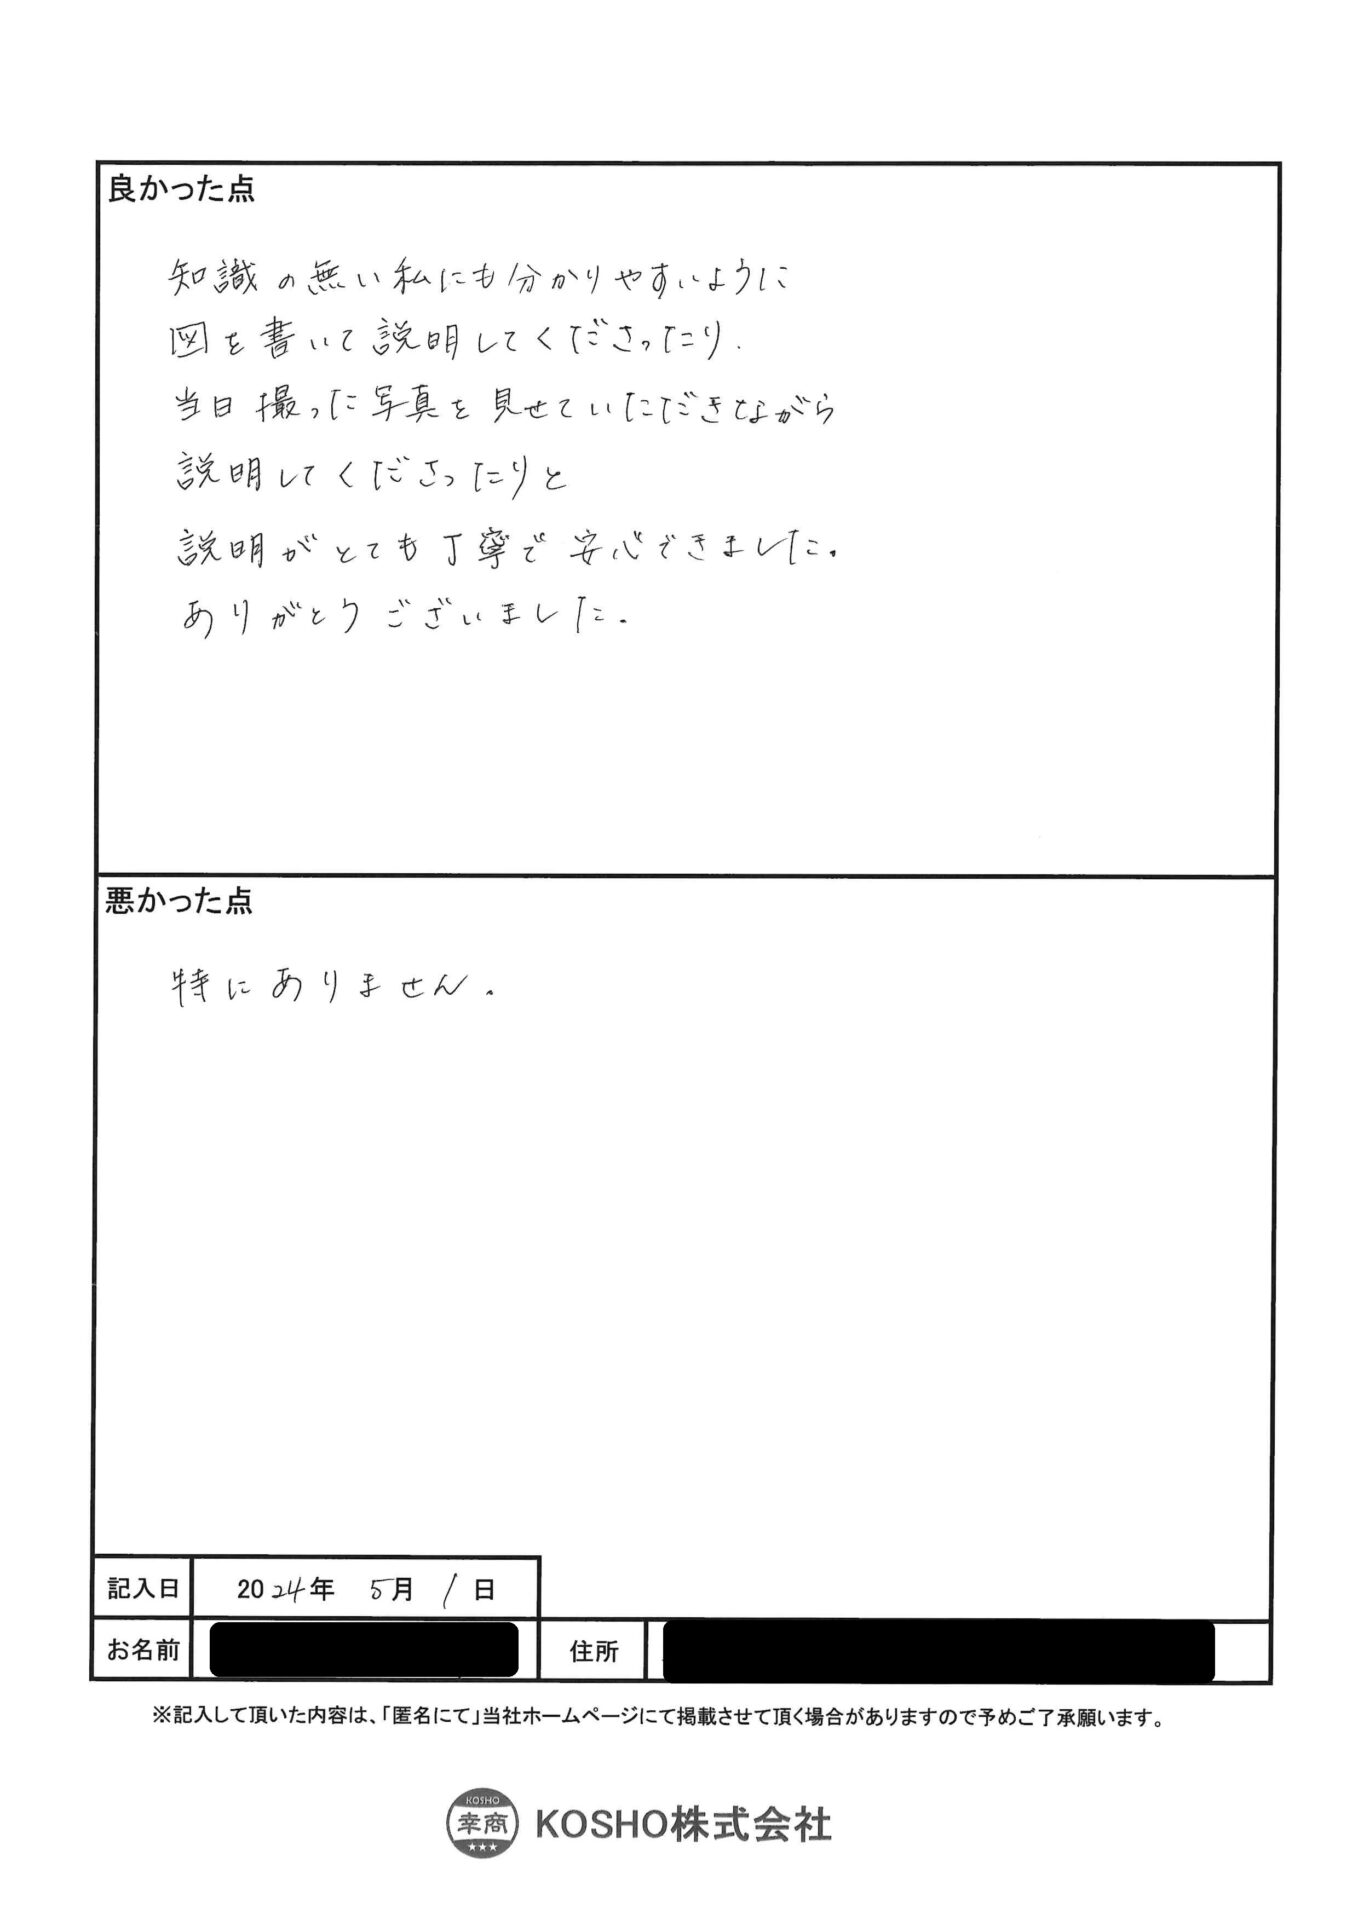 良かった点
知識の無い私にも分かりやすいように
図を書いて説明してくださったり.
当日撮った写真を見せていただきながら
説明してくださったりと
説明がとても丁寧で安心できました。
ありがとうございました。
悪かった点
特にありません。
記入日 2024年 5月 1日
お名前 住所
※記入して頂いた内容は、「匿名にて」当社ホームページにて掲載させて頂く場合がありますので予めご了承願います。
KOSHO
幸商
★★★
KOSHO株式会社